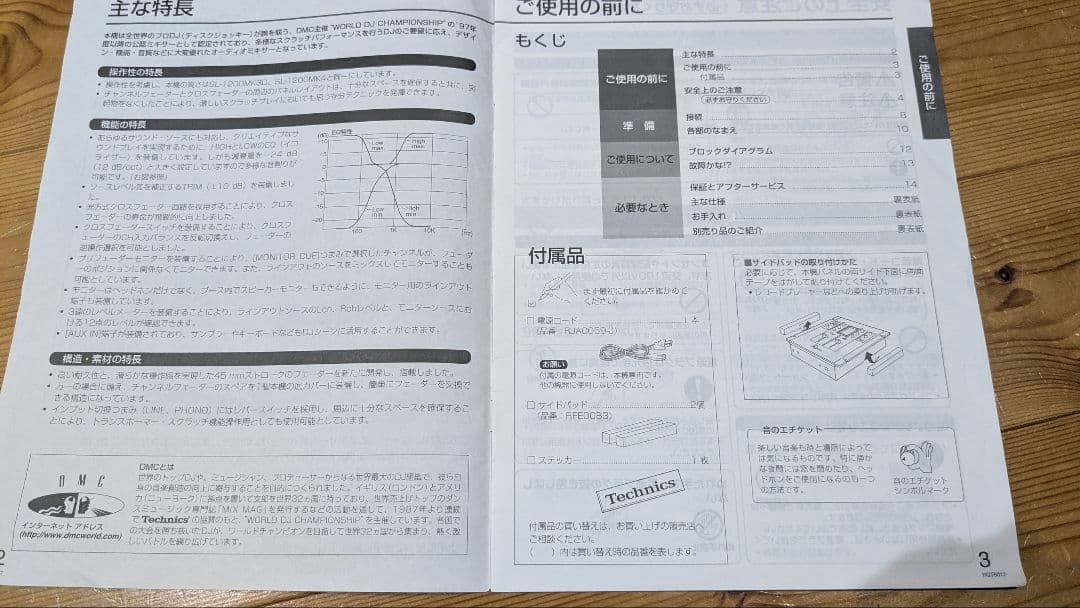 主な特長
本機は全世界のプロDJ(ディスクジョッキー)が腕を競う、DMC主催 "WORLD DJ CHAMPIONSHIP" の '97年
度以降の公認ミキサーとして認定されており、多様なスクラッチパフォーマンスを行うDJのご要望に応え、デザイ
ン・機能・音質などに大変優れたオーディオミキサーとなっています。
操作性の特長
• 操作性を考慮し、本機の高さはSL-1200MK3D、SL-1200MK4と同一にしています。
• チャンネルフェーダーとクロスフェーダーの周辺のパネルレイアウトは、十分なスペースを確保すると共に、突
起物をなくしたことにより、激しいスクラッチプレイにおいても思う存分テクニックを発揮できます。
機能の特長
• あらゆるサウンド・ソースにも対応し、クリエイティブなサ
ウンドプレイを実現するために、HIGHとLOWのEQ(イコ
ライザー)を装備しています。しかも減衰量を -24 dB
(12 dB/oct) と大きく設定していますので多様な音創りが
可能です。(右図参照)
• ソースレベル差を補正するTRIM (±10 dB) を装備しまし
た。
• 光方式クロスフェーダー回路を採用することにより、クロス
フェーダーの寿命が飛躍的に向上しました。
• クロスフェーダースイッチを装備することにより、クロスフ
ェーダーのCH入力バランスを反転切換えし、フェーダーの
逆操作選択を可能としました。
• プリフェーダーモニターを装備することにより、[MONITOR CUE]つまみで選択したチャンネルが、フェーダ
ーのポジションに関係なくモニターできます。また、ラインアウトのソースをミックスしてモニターすることも
可能としています。
• モニターはヘッドホンだけでなく、ブース内でスピーカーモニターもできるように、モニター用のラインアウト
端子も装備しています。
• 3連のレベルメーターを装備することにより、ラインアウトソースのLch、Rchレベルと、モニターソースにお
ける12点のレベルが確認できます。
• [AUX IN]端子が装備されており、サンプラーやキーボードなどもDJシーンに活用することができます。
(dB) EQ特性
+10
Low
max
High
max
-5
-10
-15
-20
Low
min
High
min
100 1K 10K (Hz)
構造・素材の特長
• 高い耐久性と、滑らかな操作感を実現した45 mmストロークのフェーダーを新たに開発し、搭載しました。
• 万一の場合に備え、チャンネルフェーダーのスペアを1個本機の底カバーに装備し、簡単にフェーダーを交換で
きる構造になっています。
• インプット切換つまみ (LINE, PHONO) にはレバースイッチを採用し、周辺に十分なスペースを確保するこ
とにより、トランスホーマー・スクラッチ機能操作用としても使用可能としています。
DMC
インターネット アドレス
(http://www.dmcworld.com)
DMCとは
世界のトップDJや、ミュージシャン、プロデューサーからなる世界最大のDJ組織で、彼ら自
身の音楽創造の向上に寄与することを目的につくられました。イギリス(ロンドン)とアメリ
カ(ニューヨーク)に拠点を置いて支部を世界32ヵ国に持っており、世界売上げトップのダン
スミュージック専門誌「MIX MAG」を発行するなどの活動を通して、1987年より連続
で Technics の協賛のもと、"WORLD DJ CHAMPIONSHIP" を主催しています。各国で
の大会を勝ち抜いたDJが、ワールドチャンピオンを目指して世界32ヵ国から集まり、熱く激
しいバトルを繰り広げています。
2
ご使用の前に
もくじ
ご使用の前に
主な特長 2
ご使用の前に 3
付属品 3
安全上のご注意
(必ずお守りください) 4
準備
接続 8
各部のなまえ 10
ご使用について
ブロックダイアグラム 12
故障かな!? 13
必要なとき
保証とアフターサービス 14
主な仕様 裏表紙
お手入れ 裏表紙
別売り品のご紹介 裏表紙
ご使用の前に
付属品
まず最初に付属品を確かめて
ください。
□ 電源コード 1 本
(品番:RJA0059-J)
お願い
付属の電源コードは、本機専用です。
他の機器に使用しないでください。
□ サイドパッド 2個
(品番:RFE0083)
□ ステッカー 1 枚
Technics
付属品の買い替えは、お買い上げの販売店へ
ご相談ください。
( )内は買い替え時の品番を表します。
■サイドパッドの取り付けかた
必要に応じて、本機パネルの両サイド下図に両面
テープをはがして貼り付けてください。
• レコードプレーヤーなどへの乗り上げが防げます。
音のエチケット
楽しい音楽も時と場所によって
は気になるものです。特に静か
な夜間には窓を閉めたり、ヘッ
ドホンをご使用になるのも一つ
の方法です。
音のエチケット
シンボルマーク
3